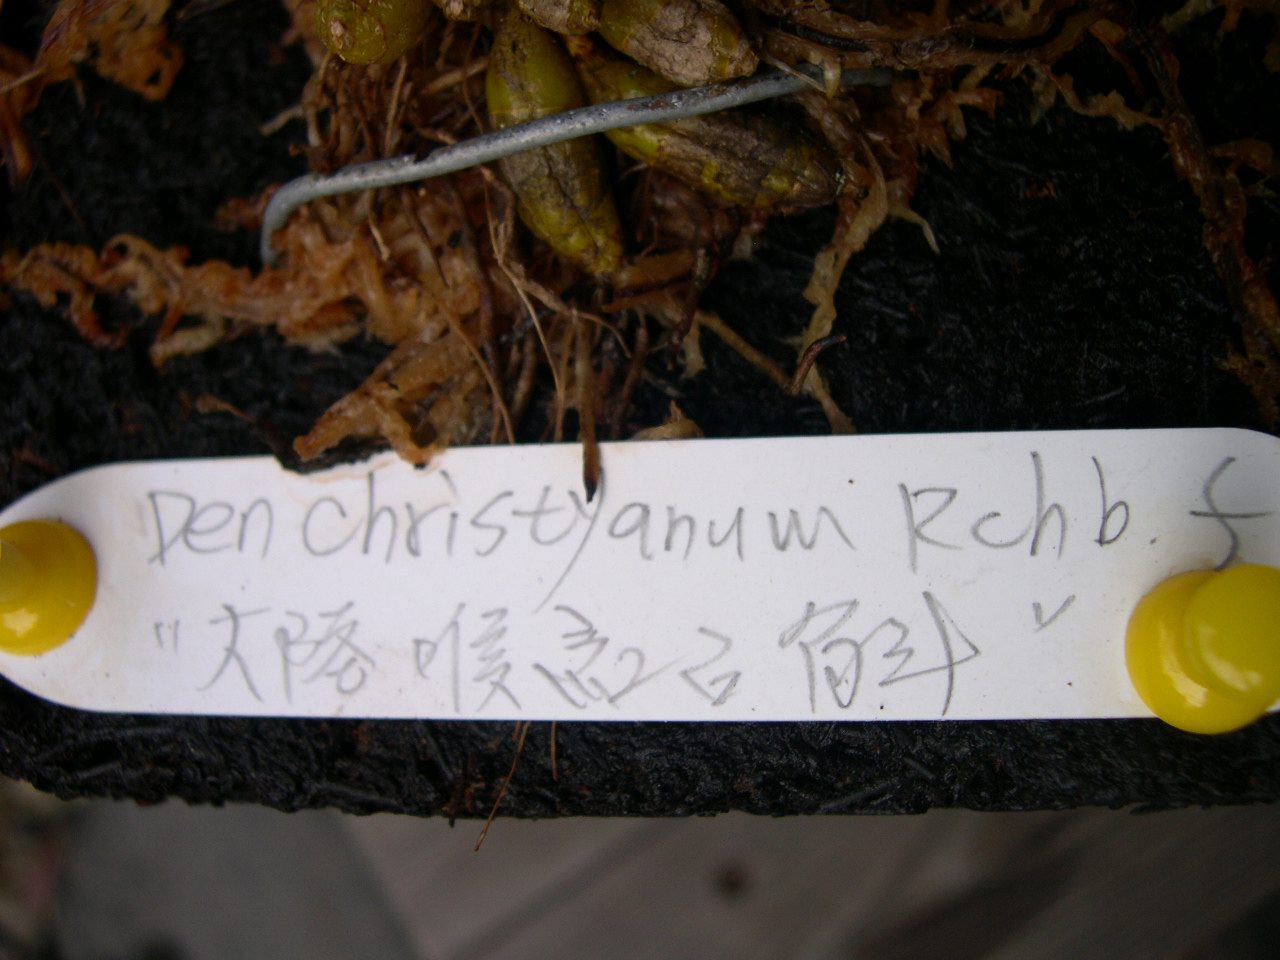 Den christyanum Rchb. f
"大陸喉唇石斛"